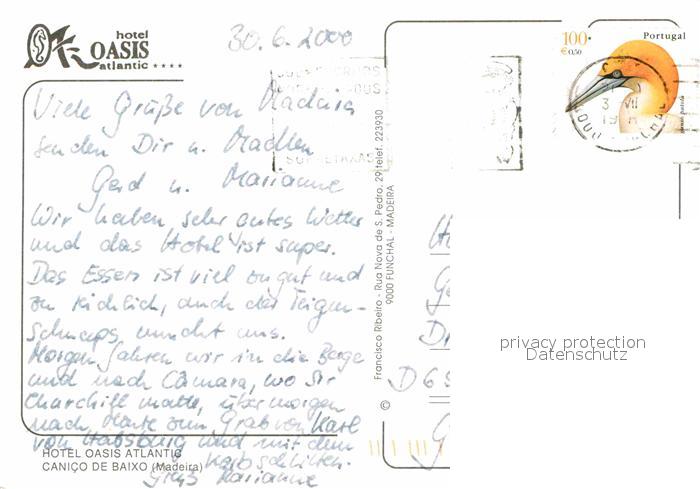 hotel
OASIS
atlantic ****
30.6.2000
Viele Grüße von Madaira
senden Dir u. Madlen
Gerd u. Marianne
Wir haben sehr gutes Wetter
und das Hotel ist super.
Das Essen ist viel zu gut und
zu reichlich, auch der Feigen-
Schnaps mundet uns.
Morgen fahren wir in die Berge
und nach Câmara, wo Sir
Churchill malte, übermorgen
nach Monte zum Grab von Karl
von Habsburg und mit dem
Korbschlitten.
Gruß Marianne
HOTEL OASIS ATLANTIC
CANIÇO DE BAIXO (Madeira)
Francisco Ribeiro - Rua Nova de S. Pedro, 29 telef. 223930
9000 FUNCHAL - MADEIRA
©
100.
€0,50
Portugal
3 VII
D 69
privacy protection
Datenschutz